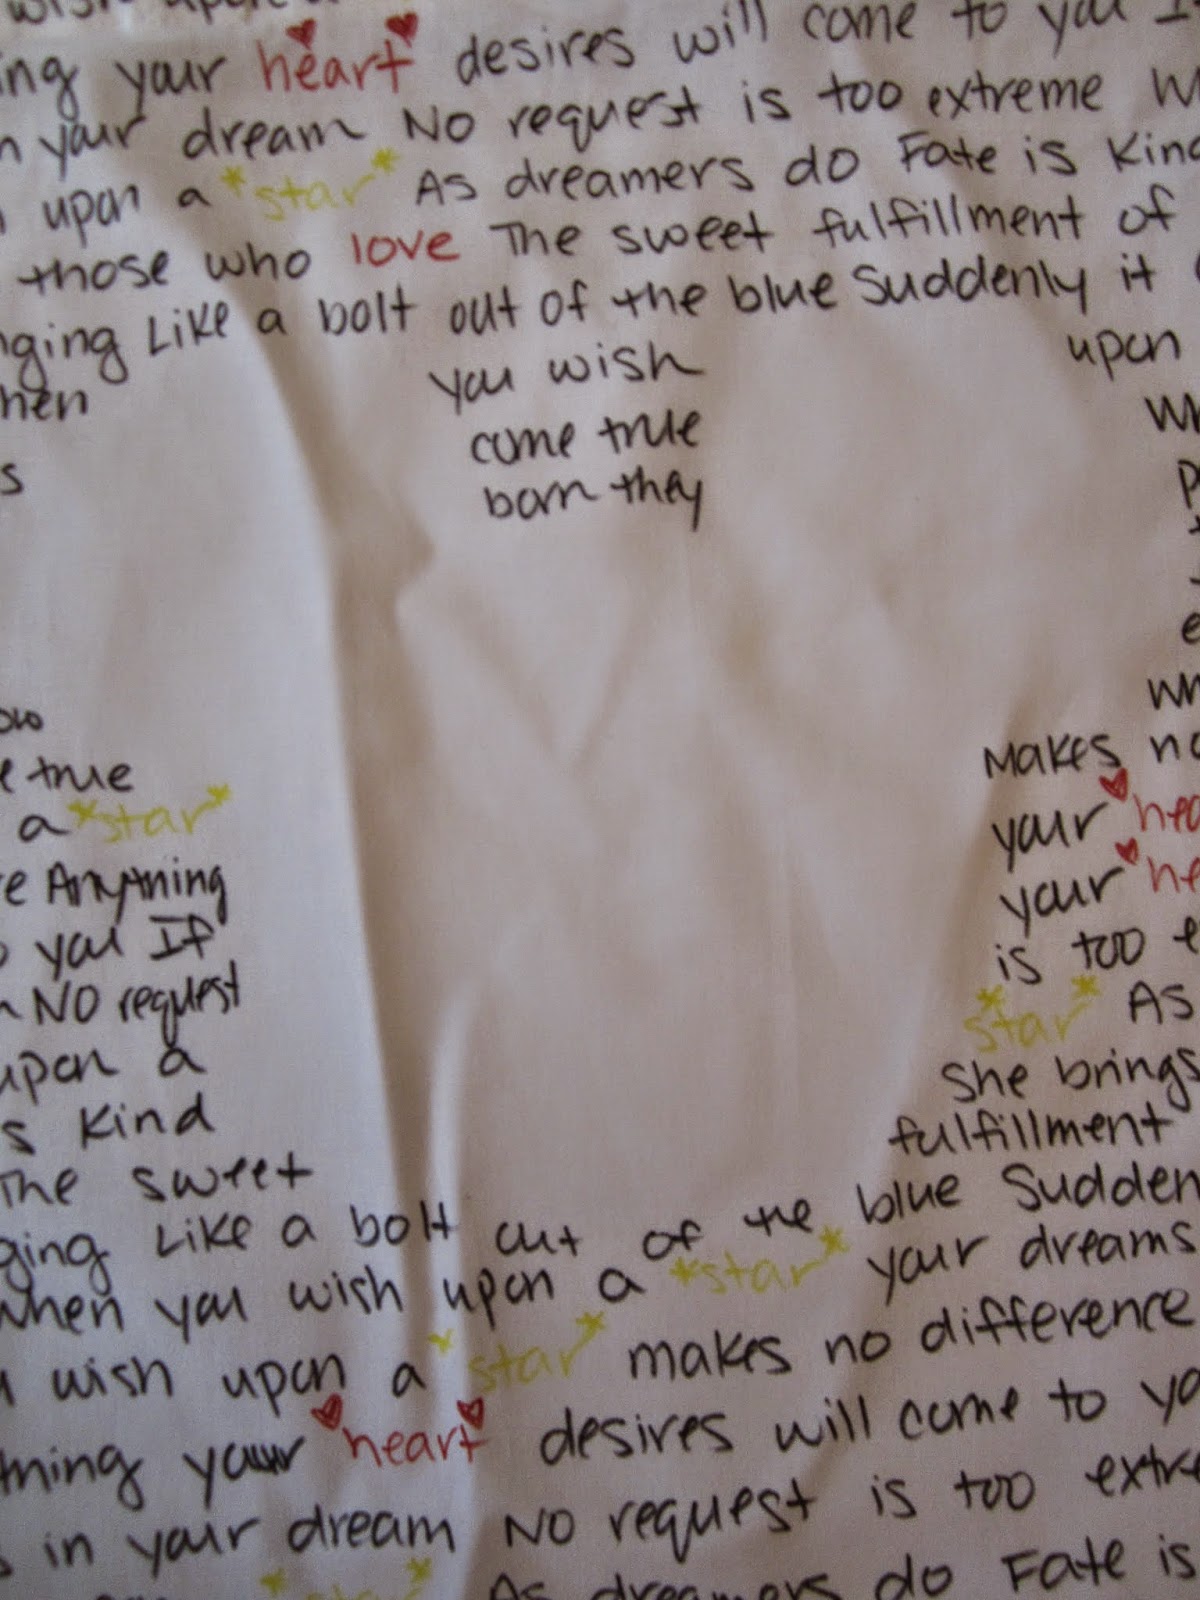 wish upon a
ing your heart desires will come to you I
n your dream No request is too extreme W
upon a *star* As dreamers do Fate is Kind
those who love The sweet fulfillment of
nging Like a bolt out of the blue Suddenly it
hen you wish upon
s come true W
born they p
e
ow wh
e true Makes no
a *star* your hea
e Anything your he
o you If is too e
n NO request *star* As
upon a She brings
s Kind fulfillment
The sweet blue Sudden
ging Like a bolt out of the
when you wish upon a *star* your dreams
u wish upon a *star* makes no difference
thing your heart desires will come to yo
s in your dream No request is too extre
*star* As dreamers do Fate is